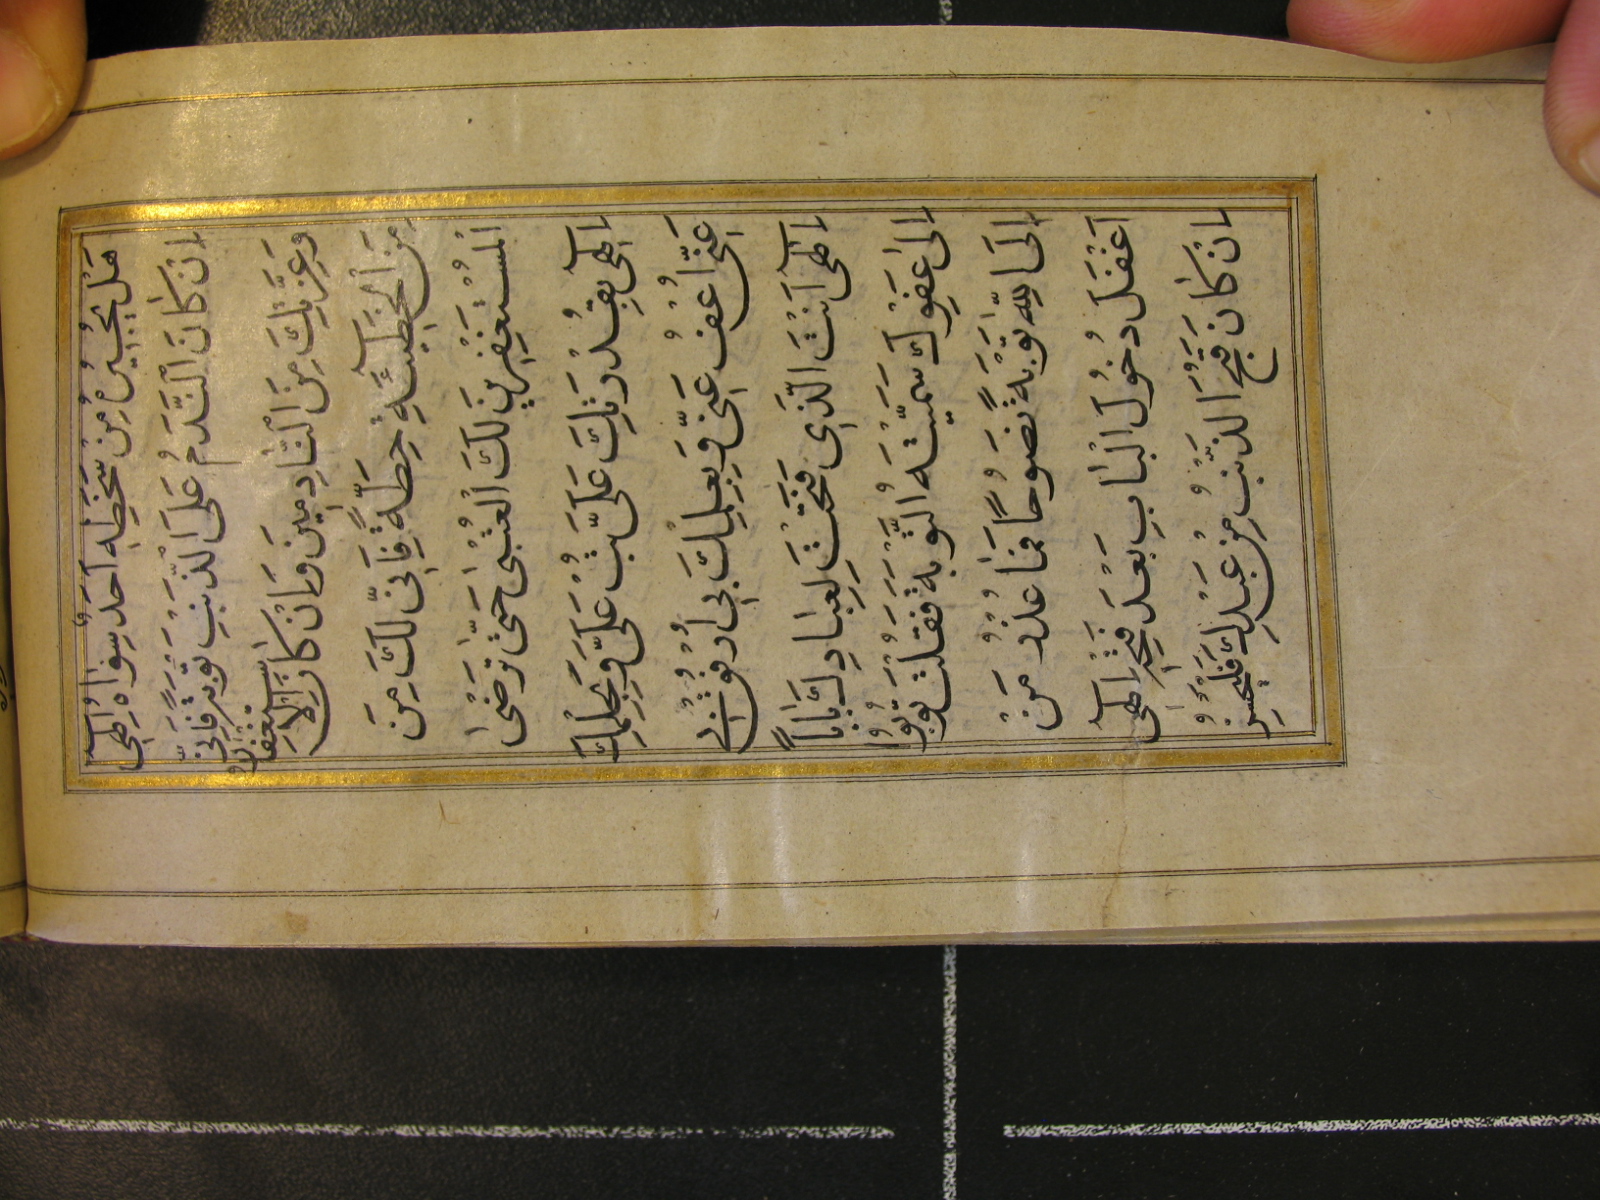 هَلْ يُجِيرُهُ مِنْ سَخَطِهِ اَحَدٌ سِوَاهُ اِلٰهِى
اِنْ كَانَ النَّدَمُ عَلَى الذَّنْبِ تَوْبَةً فَاِنّى
وَعِزَّتِكَ مِنَ النَّادِمِينَ وَاِنْ كَانَ الْاِسْتِغْفَارُ
مِنَ الْخَطِيئَةِ حِطَّةً فَاِنّى لَكَ مِنَ
الْمُسْتَغْفِرِينَ لَكَ الْعُتْبٰى حَتّٰى تَرْضٰى
اِلٰهِى بِقُدْرَتِكَ عَلَىَّ تُبْ عَلَىَّ وَبِحِلْمِكَ
عَنّى اعْفُ عَنّى وَبِعِلْمِكَ بى اَرْفِقْ بى
اِلٰهِى اَنْتَ الَّذِى فَتَحْتَ لِعِبَادِكَ بَابًا
اِلٰى عَفْوِكَ سَمَّيْتَهُ التَّوْبَةَ فَقُلْتَ تُوبُوا
اِلَى اللّٰهِ تَوْبَةً نَصُوحًا فَمَا عُذْرُ مَنْ
اَغْفَلَ دُخُولَ الْبَابِ بَعْدَ فَتْحِهِ اِلٰهِى
اِنْ كَانَ قَبُحَ الذَّنْبُ مِنْ عَبْدِكَ فَلْيَحْسُنِ